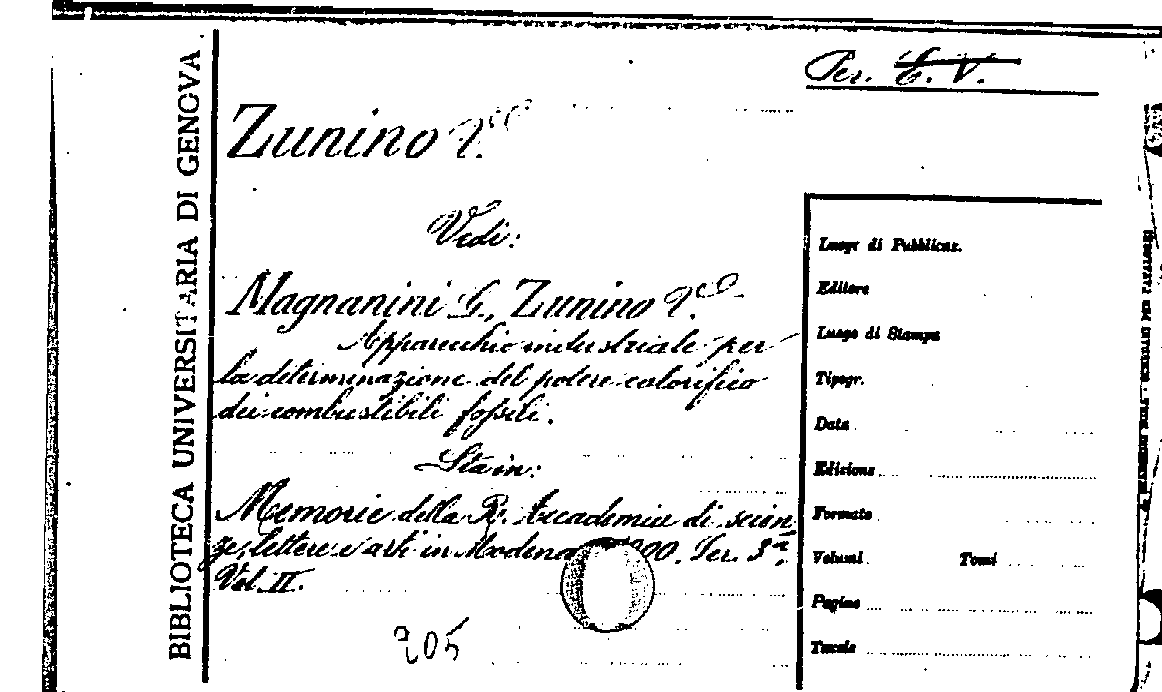 BIBLIOTECA UNIVERSITARIA DI GENOVA
Per. E. V.
Zunino V.
Vedi:
Magnanini G., Zunino V.
Apparecchio industriale per
la determinazione del potere calorifico
dei combustibili fossili.
Sta in:
Memorie della R. Accademia di scien
ze, lettere e arti in Modena 900. Ser. 3ª,
Vol. II.
205
Luogo di Pubblicaz.
Editore
Luogo di Stampa
Tipogr.
Data
Edizione
Formato
Volumi Tomi
Pagine
Tavole